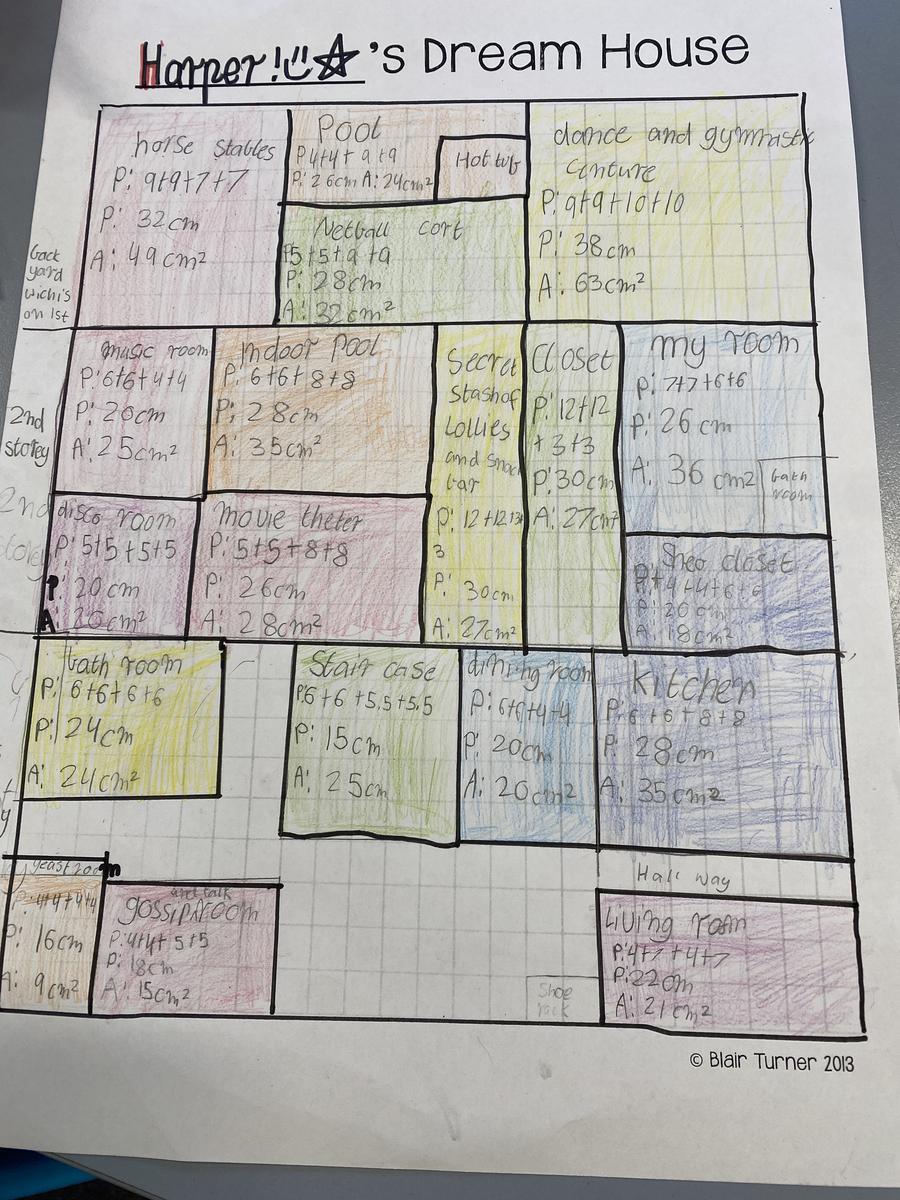 Harper!'s Dream House
horse stables
P: 9+9+7+7
P: 32 cm
A: 49 cm²
Pool
P 4+4+ 9 +9
P: 26cm A: 24cm²
Hot tub
Netball cort
P5+5+9 +9
P: 28cm
A: 32cm²
dance and gymnastic
centure
P: 9+9+10+10
P: 38cm
A: 63cm²
back
yard
wich is
on 1st
music room
P: 6+6+4+4
P: 20cm
A: 25cm²
indoor pool
P: 6+6+8+8
P: 28cm
A: 35cm²
Secret
stash of
Lollies
and snack
bar
P: 12+12+3+
3
P: 30cm
A: 27cm²
Closet
P: 12+12
+ 3+3
P: 30cm
A: 27cm²
my room
P: 7+7+6+6
P: 26 cm
A: 36 cm²
bath
room
2nd
storey
2nd
storey
disco room
P: 5+5+5+5
P: 20cm
A: 20cm²
movie theter
P: 5+5+8+8
P: 26cm
A: 28cm²
Sheo closet
P: 4+4+6+6
P: 20cm
A: 18cm²
bath room
P: 6+6+6+6
P: 24cm
A: 24cm²
Stair case
P:6+6+5.5+5.5
P: 15cm
A: 25cm
dining room
P: 6+6+4+4
P: 20cm
A: 20cm²
kitchen
P: 6+6+8+8
P: 28cm
A: 35cm²
P: 4+4+4+4
P: 16cm
A: 9cm²
and talk
gossip room
P:4+4+5+5
P: 18cm
A: 15cm²
Shoe
rack
Hall way
Living room
P:4+7+4+7
P:22cm
A: 21cm²
© Blair Turner 2013